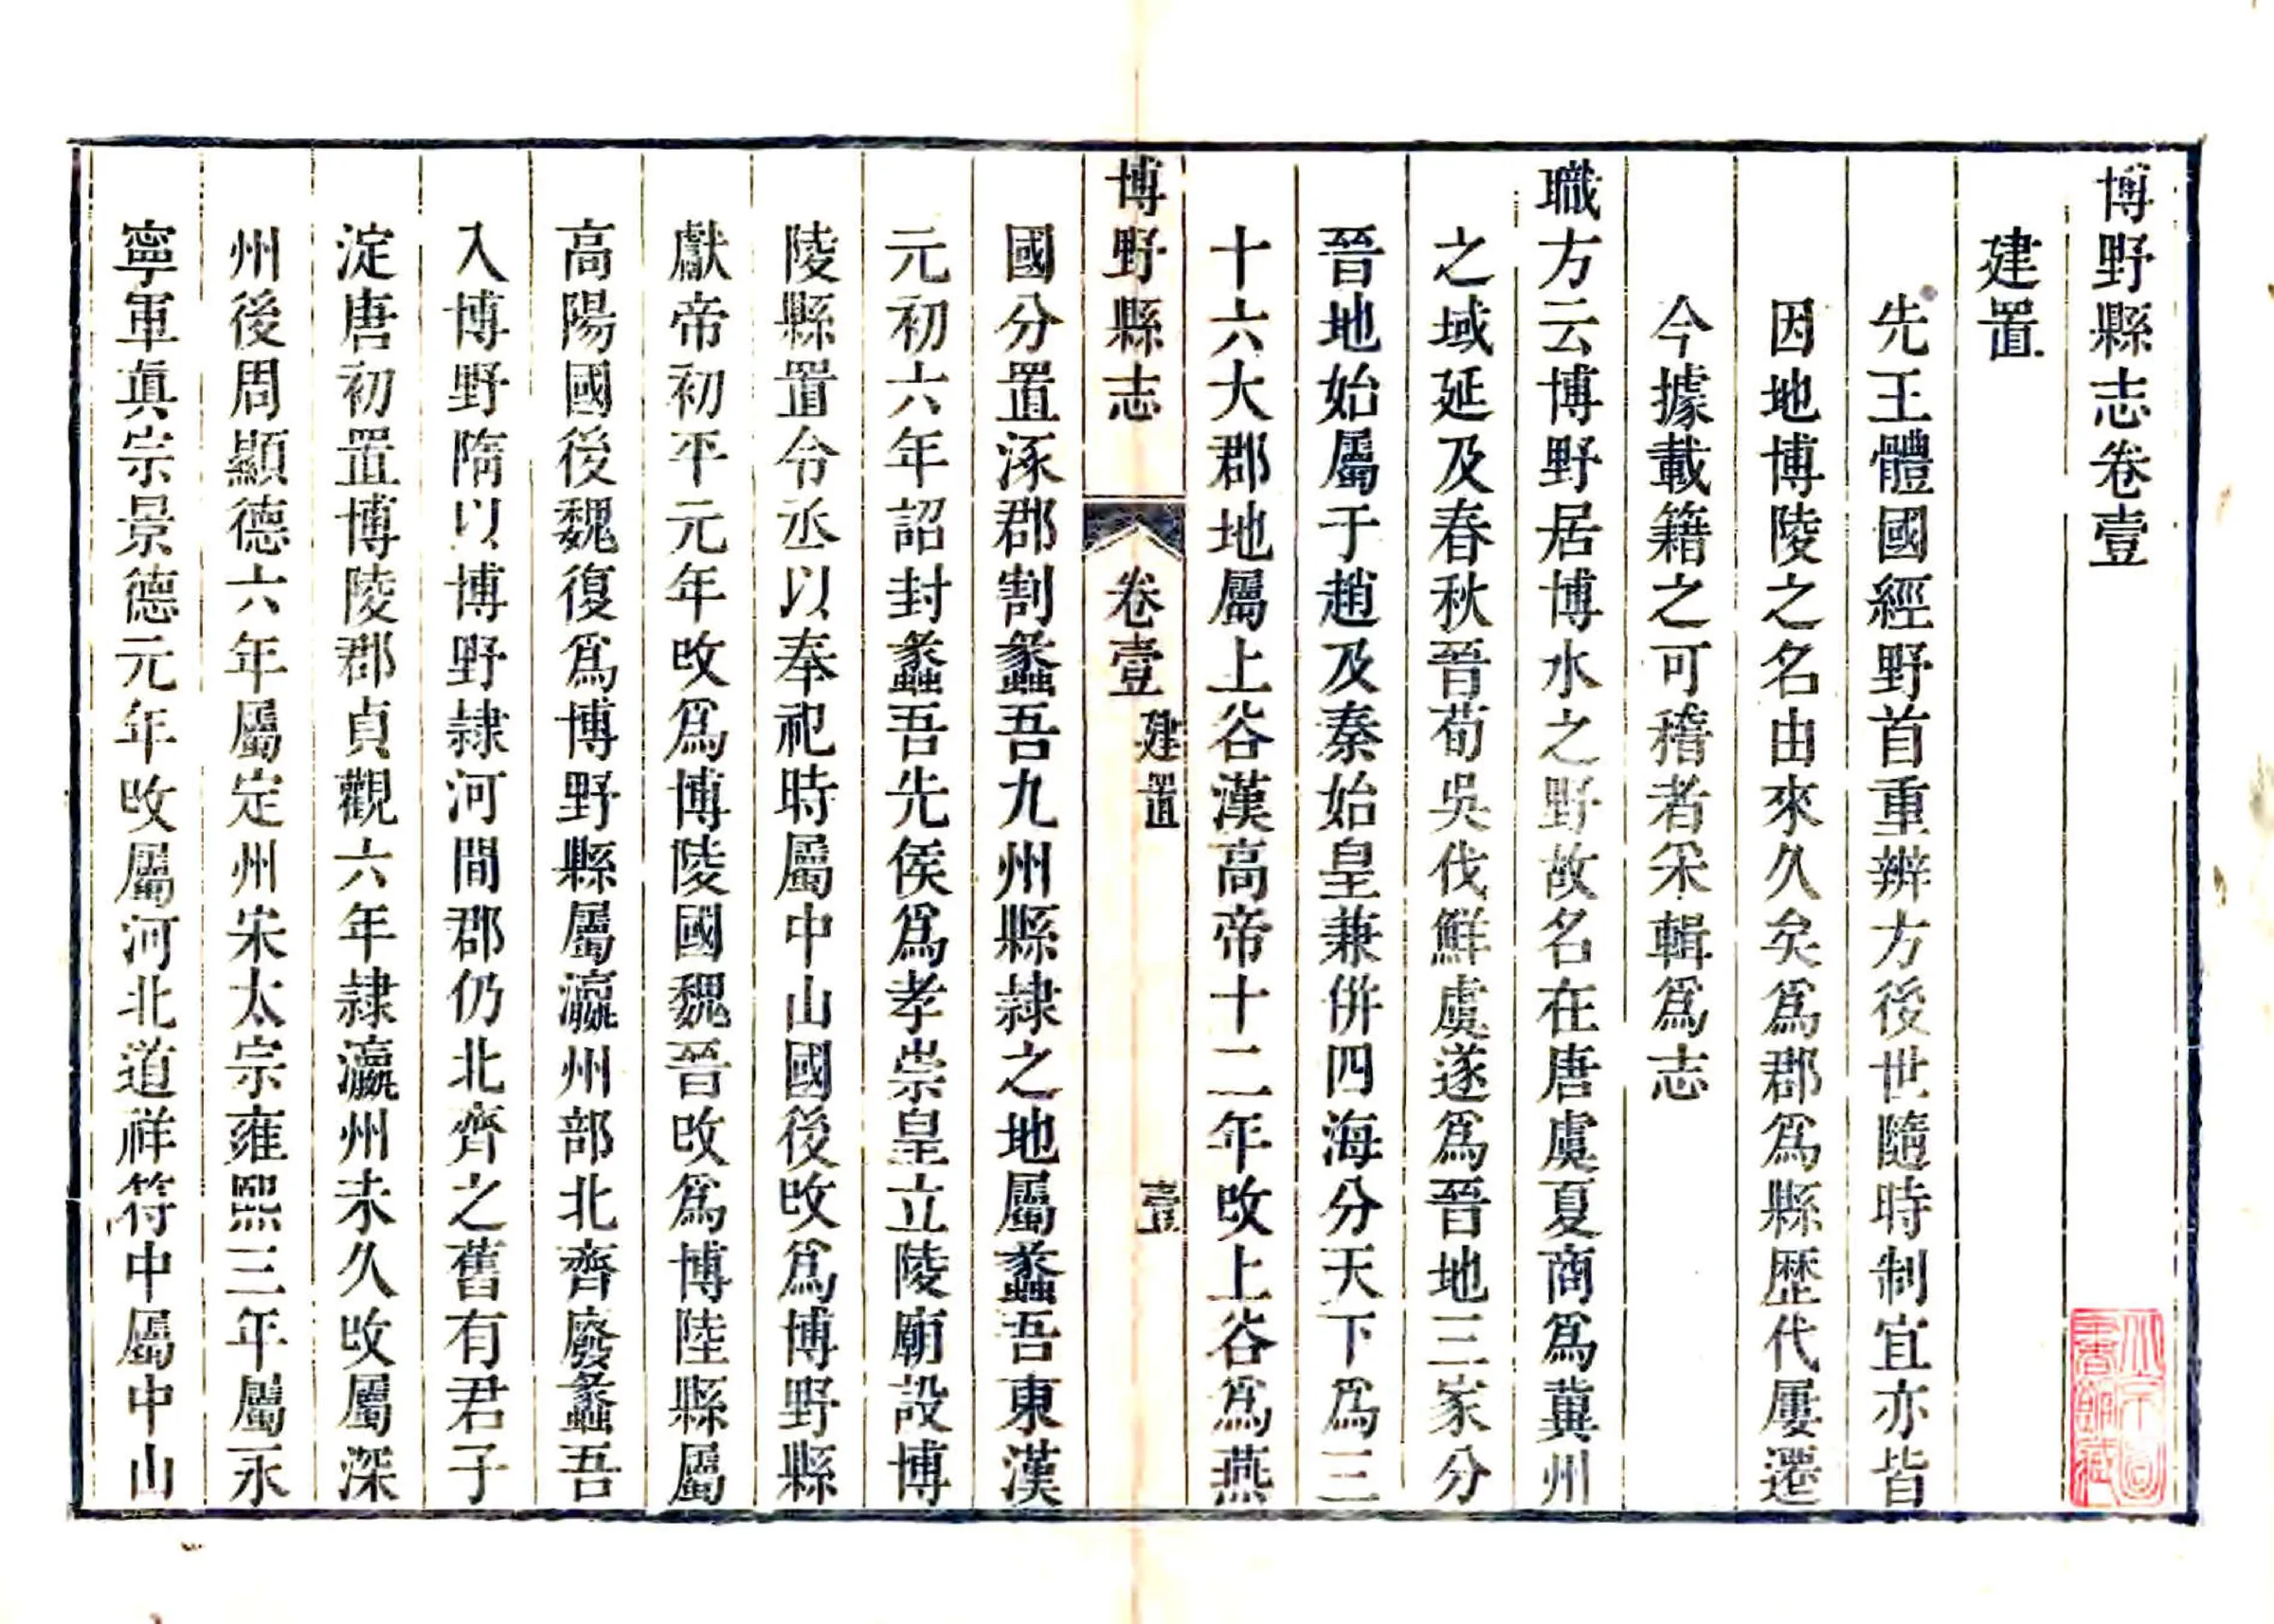 博野縣志卷壹
建置
先王體國經野首重辨方後世隨時制宜亦皆
因地博陵之名由來久矣爲郡爲縣歴代屢遷
今據載籍之可稽者采輯爲志
職方云博野居博水之野故名在唐虞夏商爲冀州
之域延及春秋晉荀吳伐鮮虞遂爲晉地三家分
晉地始屬于趙及秦始皇兼併四海分天下爲三
十六大郡地屬上谷漢高帝十二年改上谷爲燕
博野縣志
卷壹
建置
壹
國分置涿郡割蠡吾九州縣隷之地屬蠡吾東漢
元初六年詔封蠡吾先侯爲孝崇皇立陵廟設博
陵縣置令丞以奉祀時屬中山國後改爲博野縣
獻帝初平元年改爲博陵國魏晉改爲博陸縣屬
高陽國後魏復爲博野縣屬瀛州部北齊廢蠡吾
入博野隋以博野隷河間郡仍北齊之舊有君子
淀唐初置博陵郡貞觀六年隷瀛州未久改屬深
州後周顯德六年屬定州宋太宗雍熙三年屬永
寧軍眞宗景德元年改屬河北道祥符中屬中山